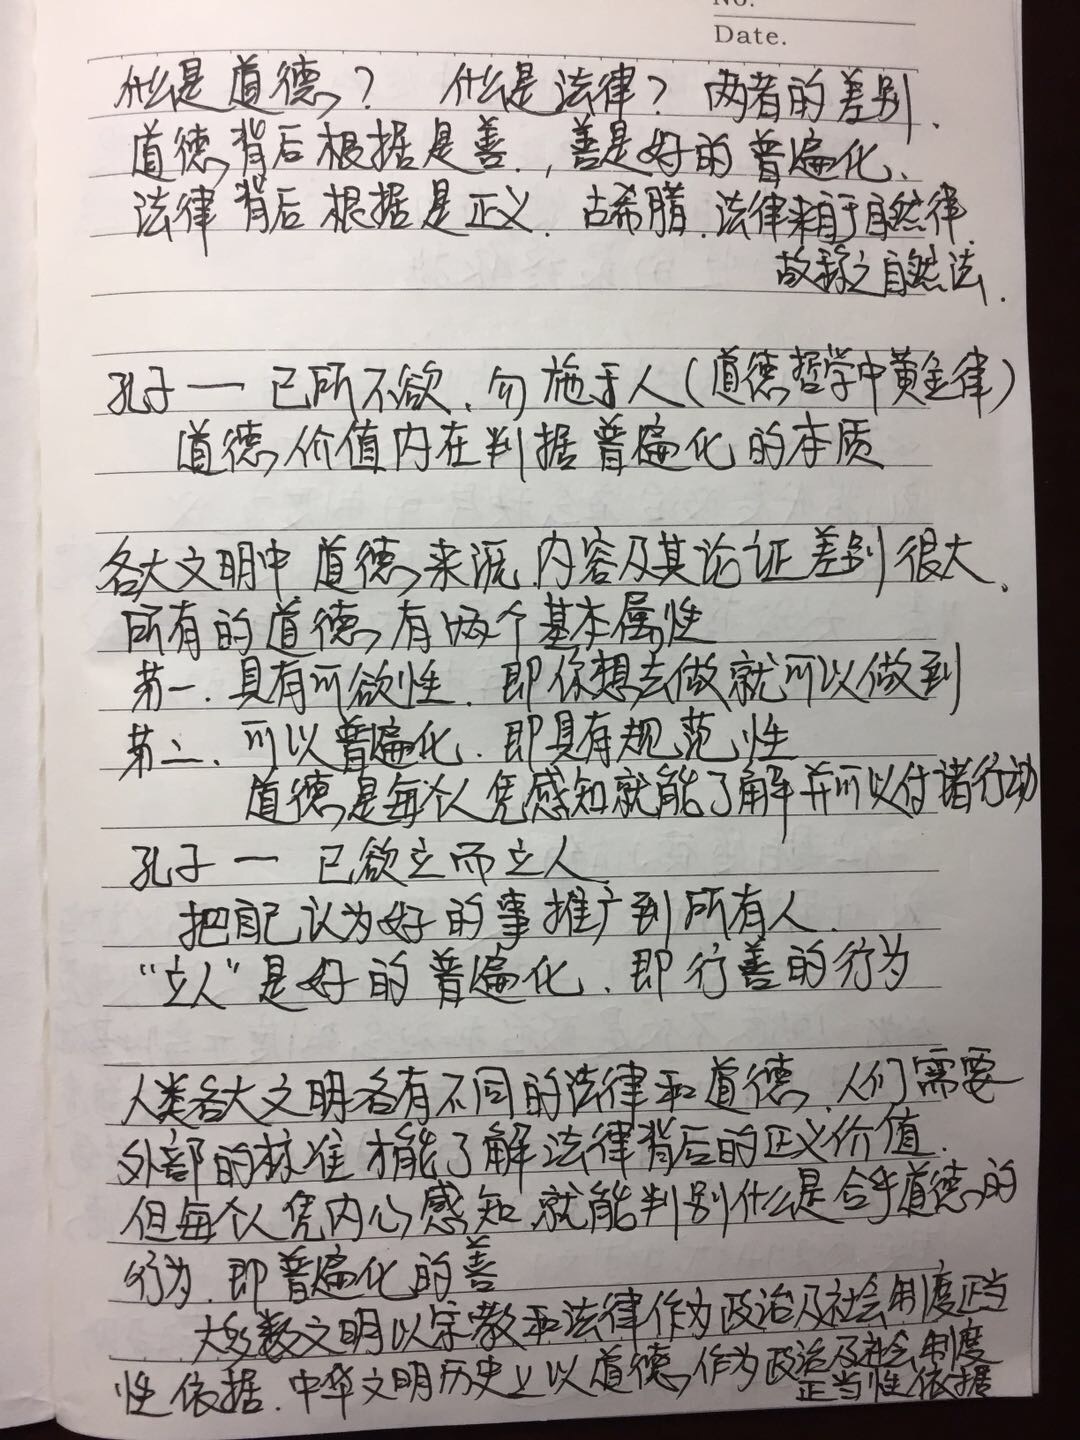 No.
Date.
什么是道德？ 什么是法律？ 两者的差别.
道德背后根据是善., 善是好的普遍化.
法律背后根据是正义. 古希腊.法律来自于自然律.
故称之自然法.
孔子一 己所不欲.勿施于人(道德哲学中黄金律)
道德价值内在判据普遍化的本质
各大文明中道德来源.内容及其论证差别很大.
所有的道德有两个基本属性
第一.具有可欲性.即你想去做就可以做到
第二.可以普遍化.即具有规范性
道德是每个人凭感知就能了解并可以付诸行动
孔子一 己欲立而立人
把自己认为好的事推广到所有人.
“立人”是好的普遍化.即行善的行为
人类各大文明各有不同的法律和道德.人们需要
外部的标准才能了解法律背后的正义价值.
但每个人凭内心感知.就能判别什么是合乎道德的
行为.即普遍化的善
大多数文明以宗教和法律作为政治及社会制度正当
性依据.中华文明历史上以道德作为政治及社会制度
正当性依据